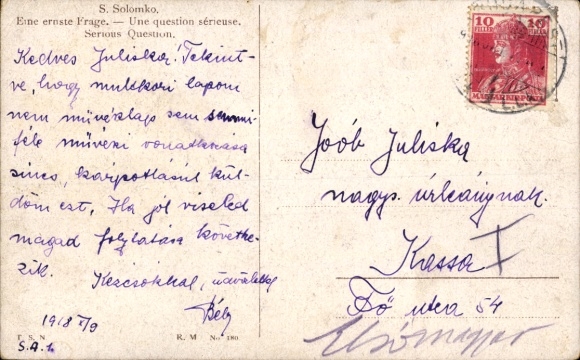 S. Solomko.
Eine ernste Frage. — Une question sérieuse.
Serious Question.
Kedves Juliska! Tekint-
ve, hogy multkori lapom
nem művészlap sem semmi-
féle művézi vonatkozása
sincs, kárpótlásúl kül-
döm ezt. Ha jól viseled
magad folytatása követke-
zik. Kézcsókkal, üdvözlettel
Béla
1918 X/9
T. S. N.
R. M. No 180
S.A.1.
10 10
FILLÉR FILLÉR
MAGYAR KIR. POSTA
Joób Juliska
nagys. úrleánynak.
Kassa I
Fő utca 54